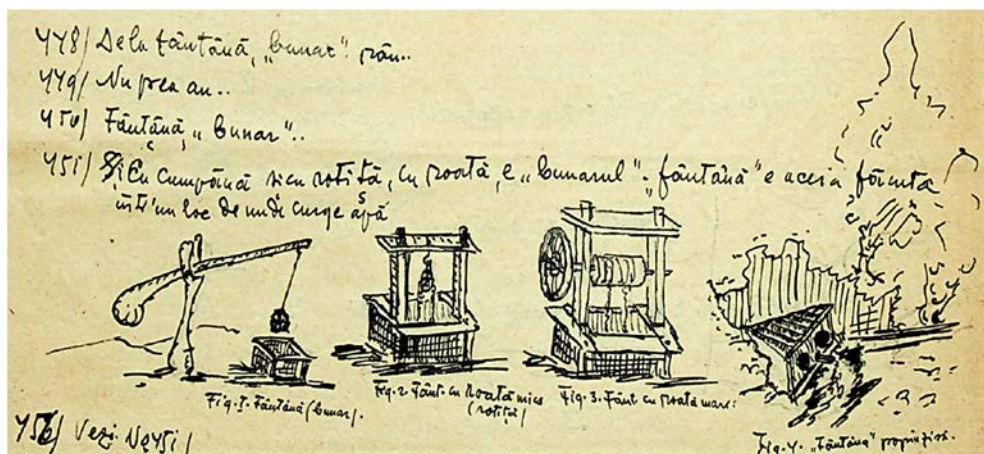 448/ Dela fântână, „bunar”. râu..
449/ Nu prea au..
450/ Fântână, „bunar”..
451/ Și cu cumpănă și cu rotiță, cu roată, e „bunarul”. „fântână” e aceia făcută
într'un loc de unde curge apă
Fig. 1. Fântână (bunar).
Fig. 2 Fânt. cu roată mică
(rotiță)
Fig. 3. Fânt. cu roată mare.
Fig. 4. „Fântână” propriu zisă.
456/ Vezi Nº 451/